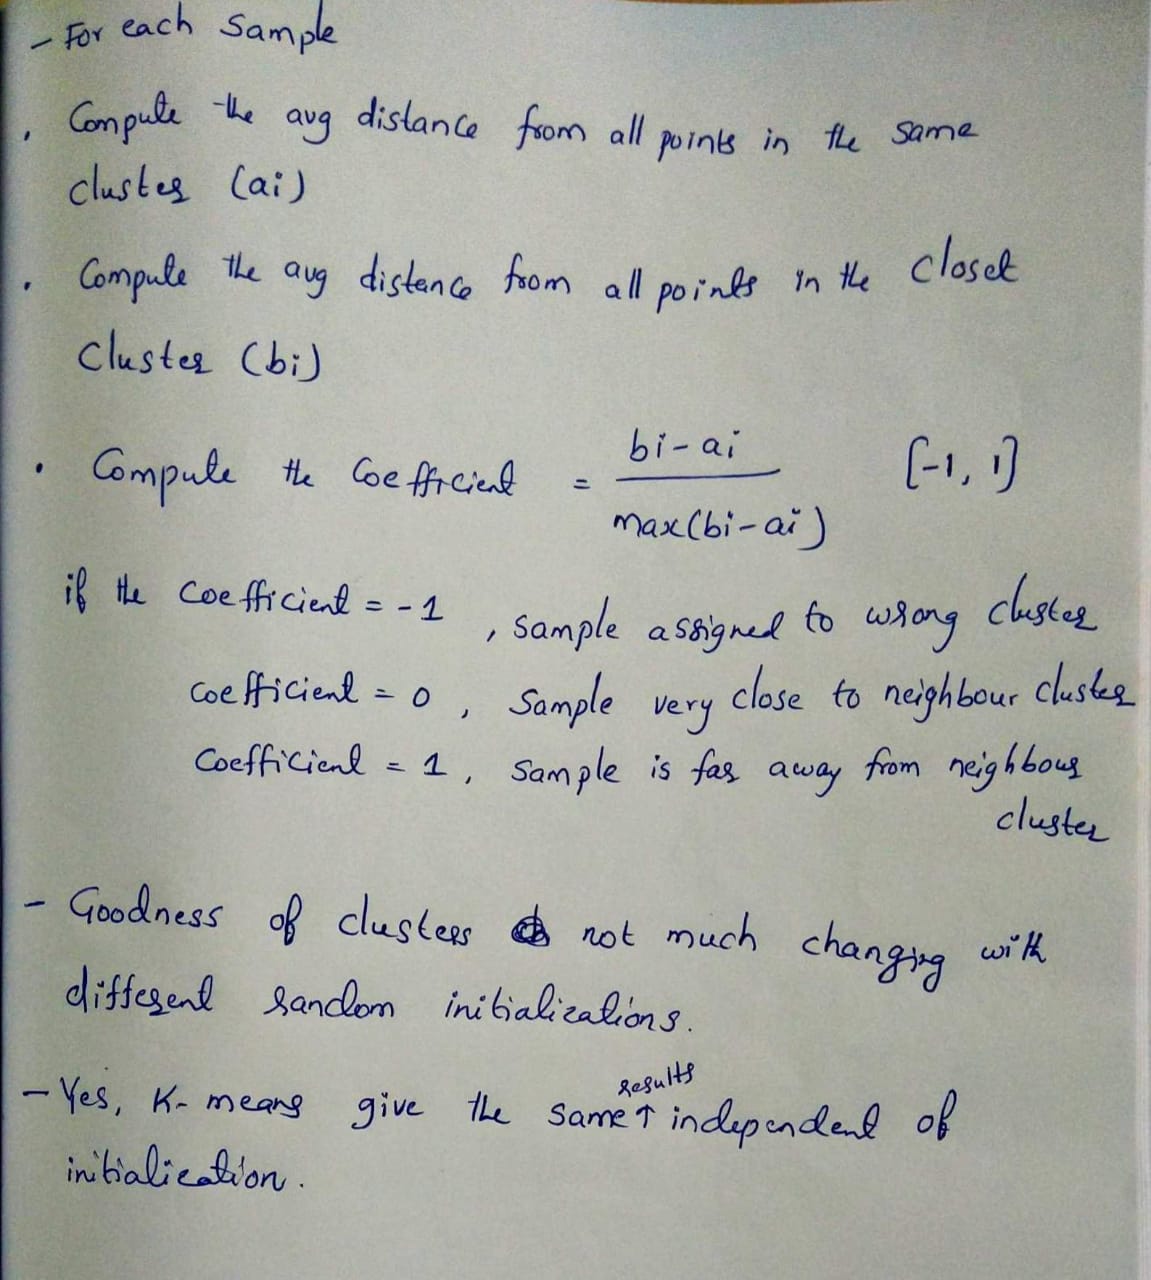 - For each Sample
. Compute the avg distance from all points in the same
cluster (ai)
. Compute the avg distance from all points in the closet
Cluster (bi)
. Compute the Coefficient = bi-ai / max(bi-ai) [-1, 1]
if the coefficient = -1 , sample assigned to wrong cluster
coefficient = 0 , Sample very close to neighbour cluster
Coefficient = 1 , Sample is far away from neighbour
cluster
- Goodness of clusters not much changing with
different random initializations.
- Yes, K-means give the same ↑ results independent of
initialization.